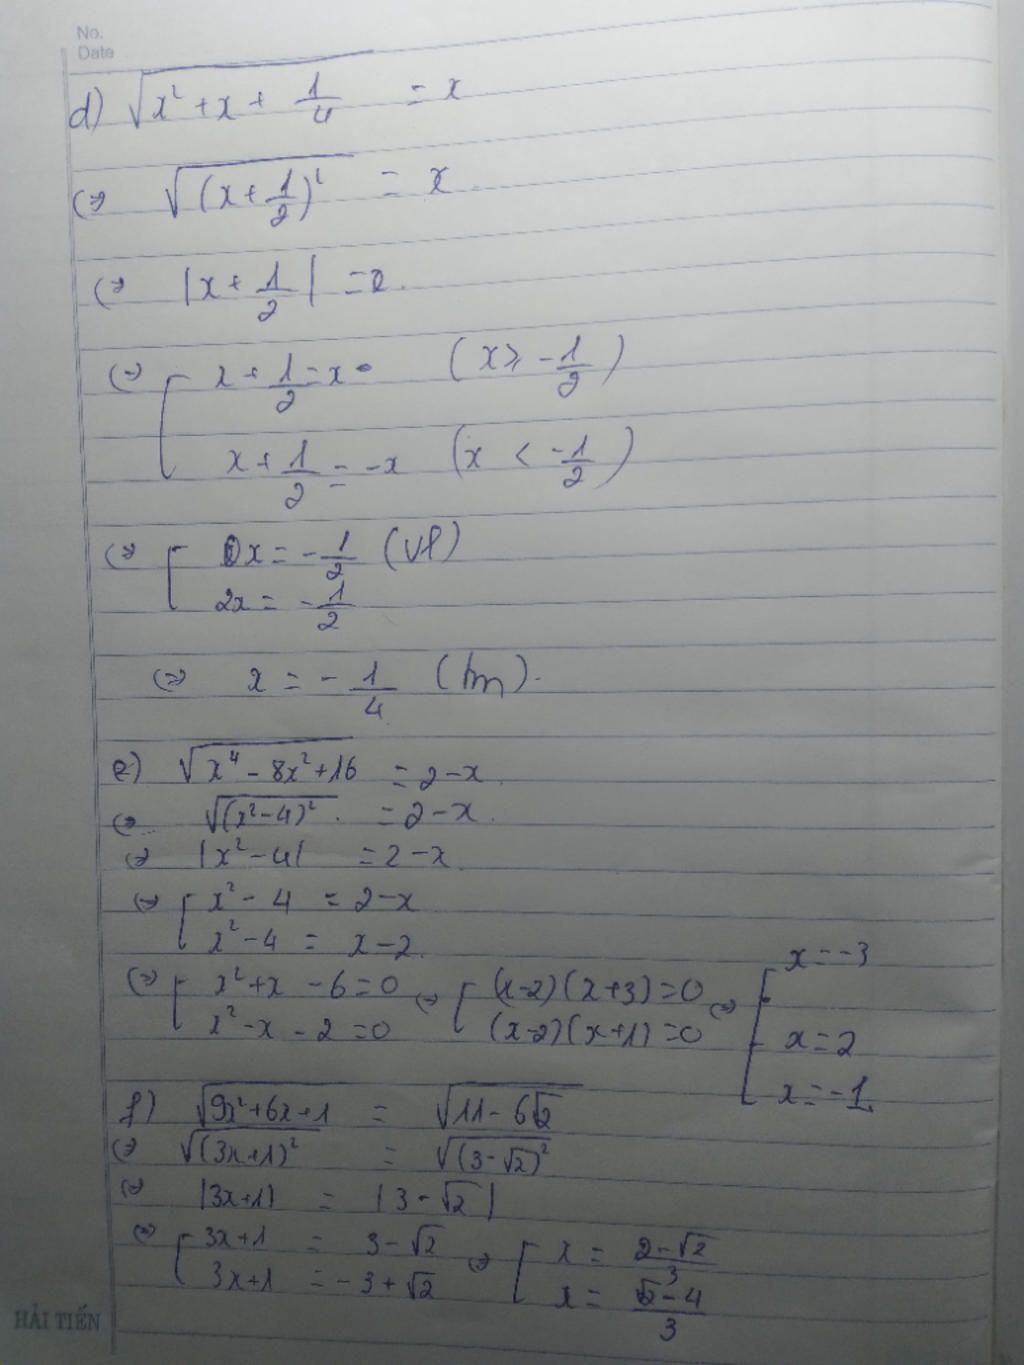 No.
Date
d) √(x² + x + 1/4) = x
(=) √((x + 1/2)²) = x
(=) |x + 1/2| = x.
(=) [ x + 1/2 = x (x ≥ -1/2)
x + 1/2 = -x (x < -1/2)
(=) [ 0x = -1/2 (vl)
2x = -1/2
(=) x = -1/4 (tm).
e) √(x⁴ - 8x² + 16) = 2 - x.
(=) √((x² - 4)²) = 2 - x.
(=) |x² - 4| = 2 - x.
(=) [ x² - 4 = 2 - x
x² - 4 = x - 2.
(=) [ x² + x - 6 = 0 (=) [ (x-2)(x+3) = 0 (=) [ x = -3
x² - x - 2 = 0 (x-2)(x+1) = 0 x = 2
x = -1
f) √(9x² + 6x + 1) = √(11 - 6√2)
(=) √((3x+1)²) = √((3 - √2)²)
(=) |3x+1| = |3 - √2|
(=) [ 3x+1 = 3 - √2 (=) [ x = (2 - √2)/3
3x+1 = -3 + √2 x = (√2 - 4)/3
HẢI TIẾN